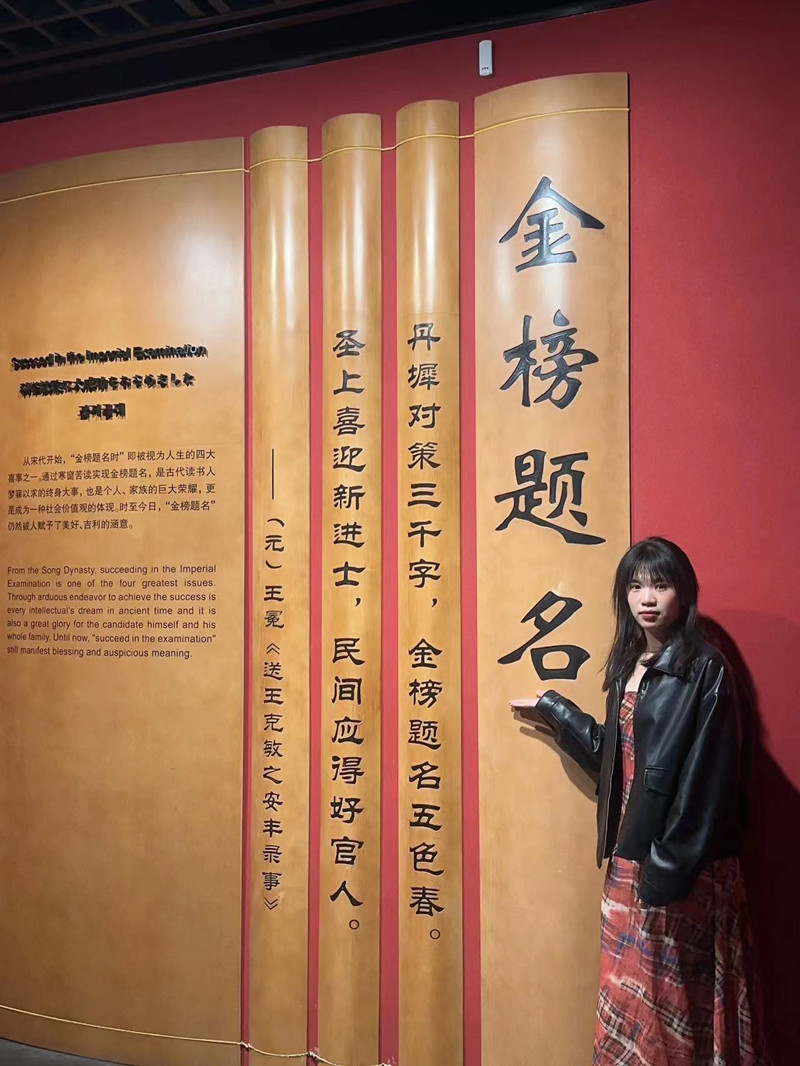 金榜题名
丹墀对策三千字，金榜题名五色春。
圣上喜迎新进士，民间应得好官人。
——（元）王冕《送王克敏之安丰录事》
Succeed in the Imperial Examination
从宋代开始，“金榜题名时”即被视为人生的四大
喜事之一。通过寒窗苦读实现金榜题名，是古代读书人
梦寐以求的终身大事，也是个人、家族的巨大荣耀，更
是成为一种社会价值观的体现。时至今日，“金榜题名”
仍然被人赋予了美好、吉利的涵意。
From the Song Dynasty, succeeding in the Imperial
Examination is one of the four greatest issues.
Through arduous endeavor to achieve the success is
every intellectual's dream in ancient time and it is
also a great glory for the candidate himself and his
whole family. Until now, "succeed in the examination"
still manifest blessing and auspicious meaning.